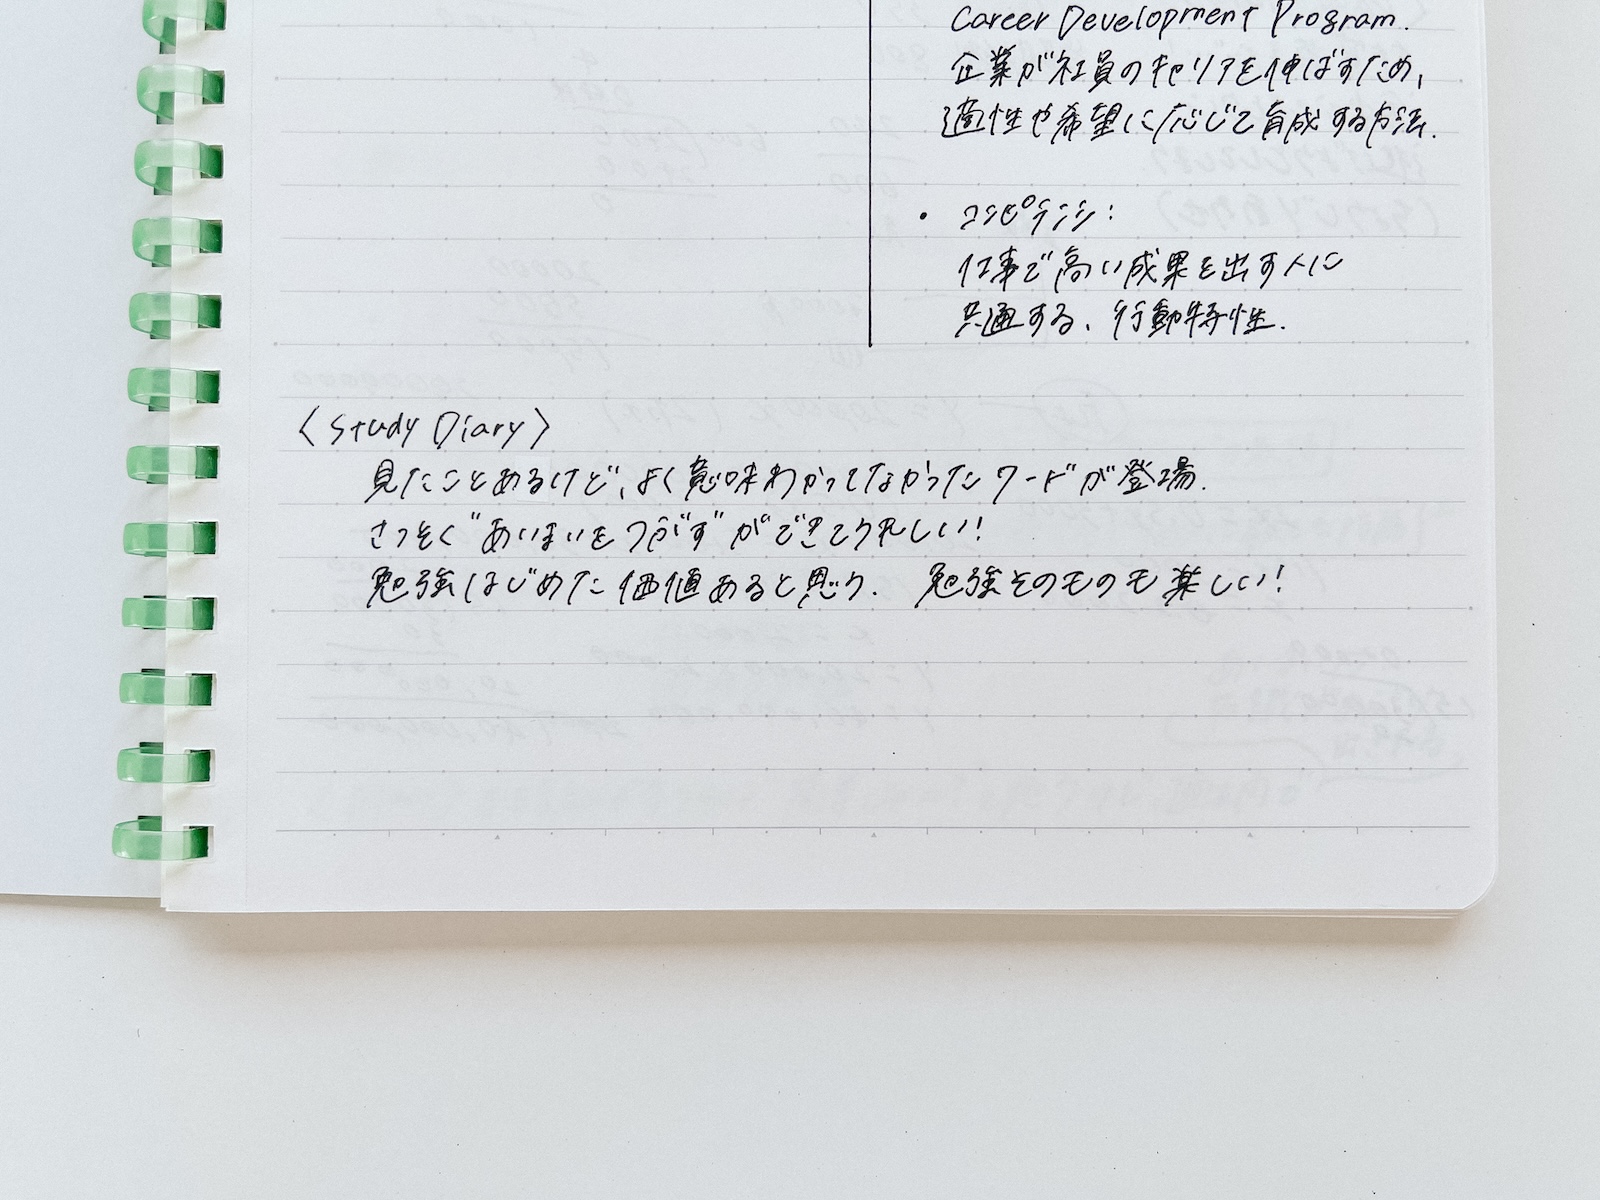 Career Development Program.
企業が社員のキャリアを伸ばすため、
適性や希望に応じて育成する方法.
・コンピテンシ：
仕事で高い成果を出す人に
共通する、行動特性.
〈Study Diary〉
見たことあるけど、よく意味わかってなかったワードが登場.
さっそく"あいまいをつぶす"ができてうれしい！
勉強はじめた価値あると思う. 勉強そのものも楽しい！